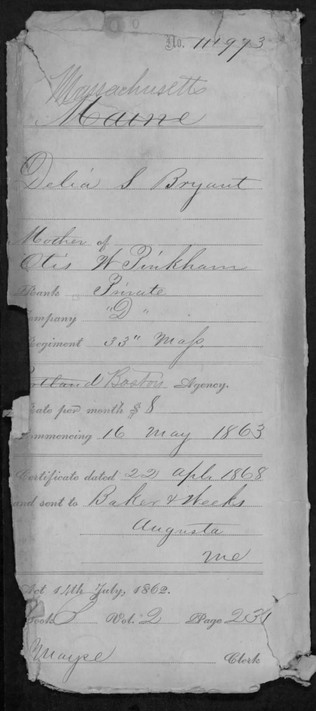 No. 111973
Massachusetts
Maine
Delia S Bryant
Mother of
Otis W Pinkham
Rank Private
Company "D"
Regiment 33" Mass.
Portland Boston Agency.
Rate per month $ 8
Commencing 16 May 1863
Certificate dated 22 Apl. 1868
and sent to Baker & Weeks
Augusta
Me
Act 14th July, 1862.
Book Vol. 2 Page
Clerk